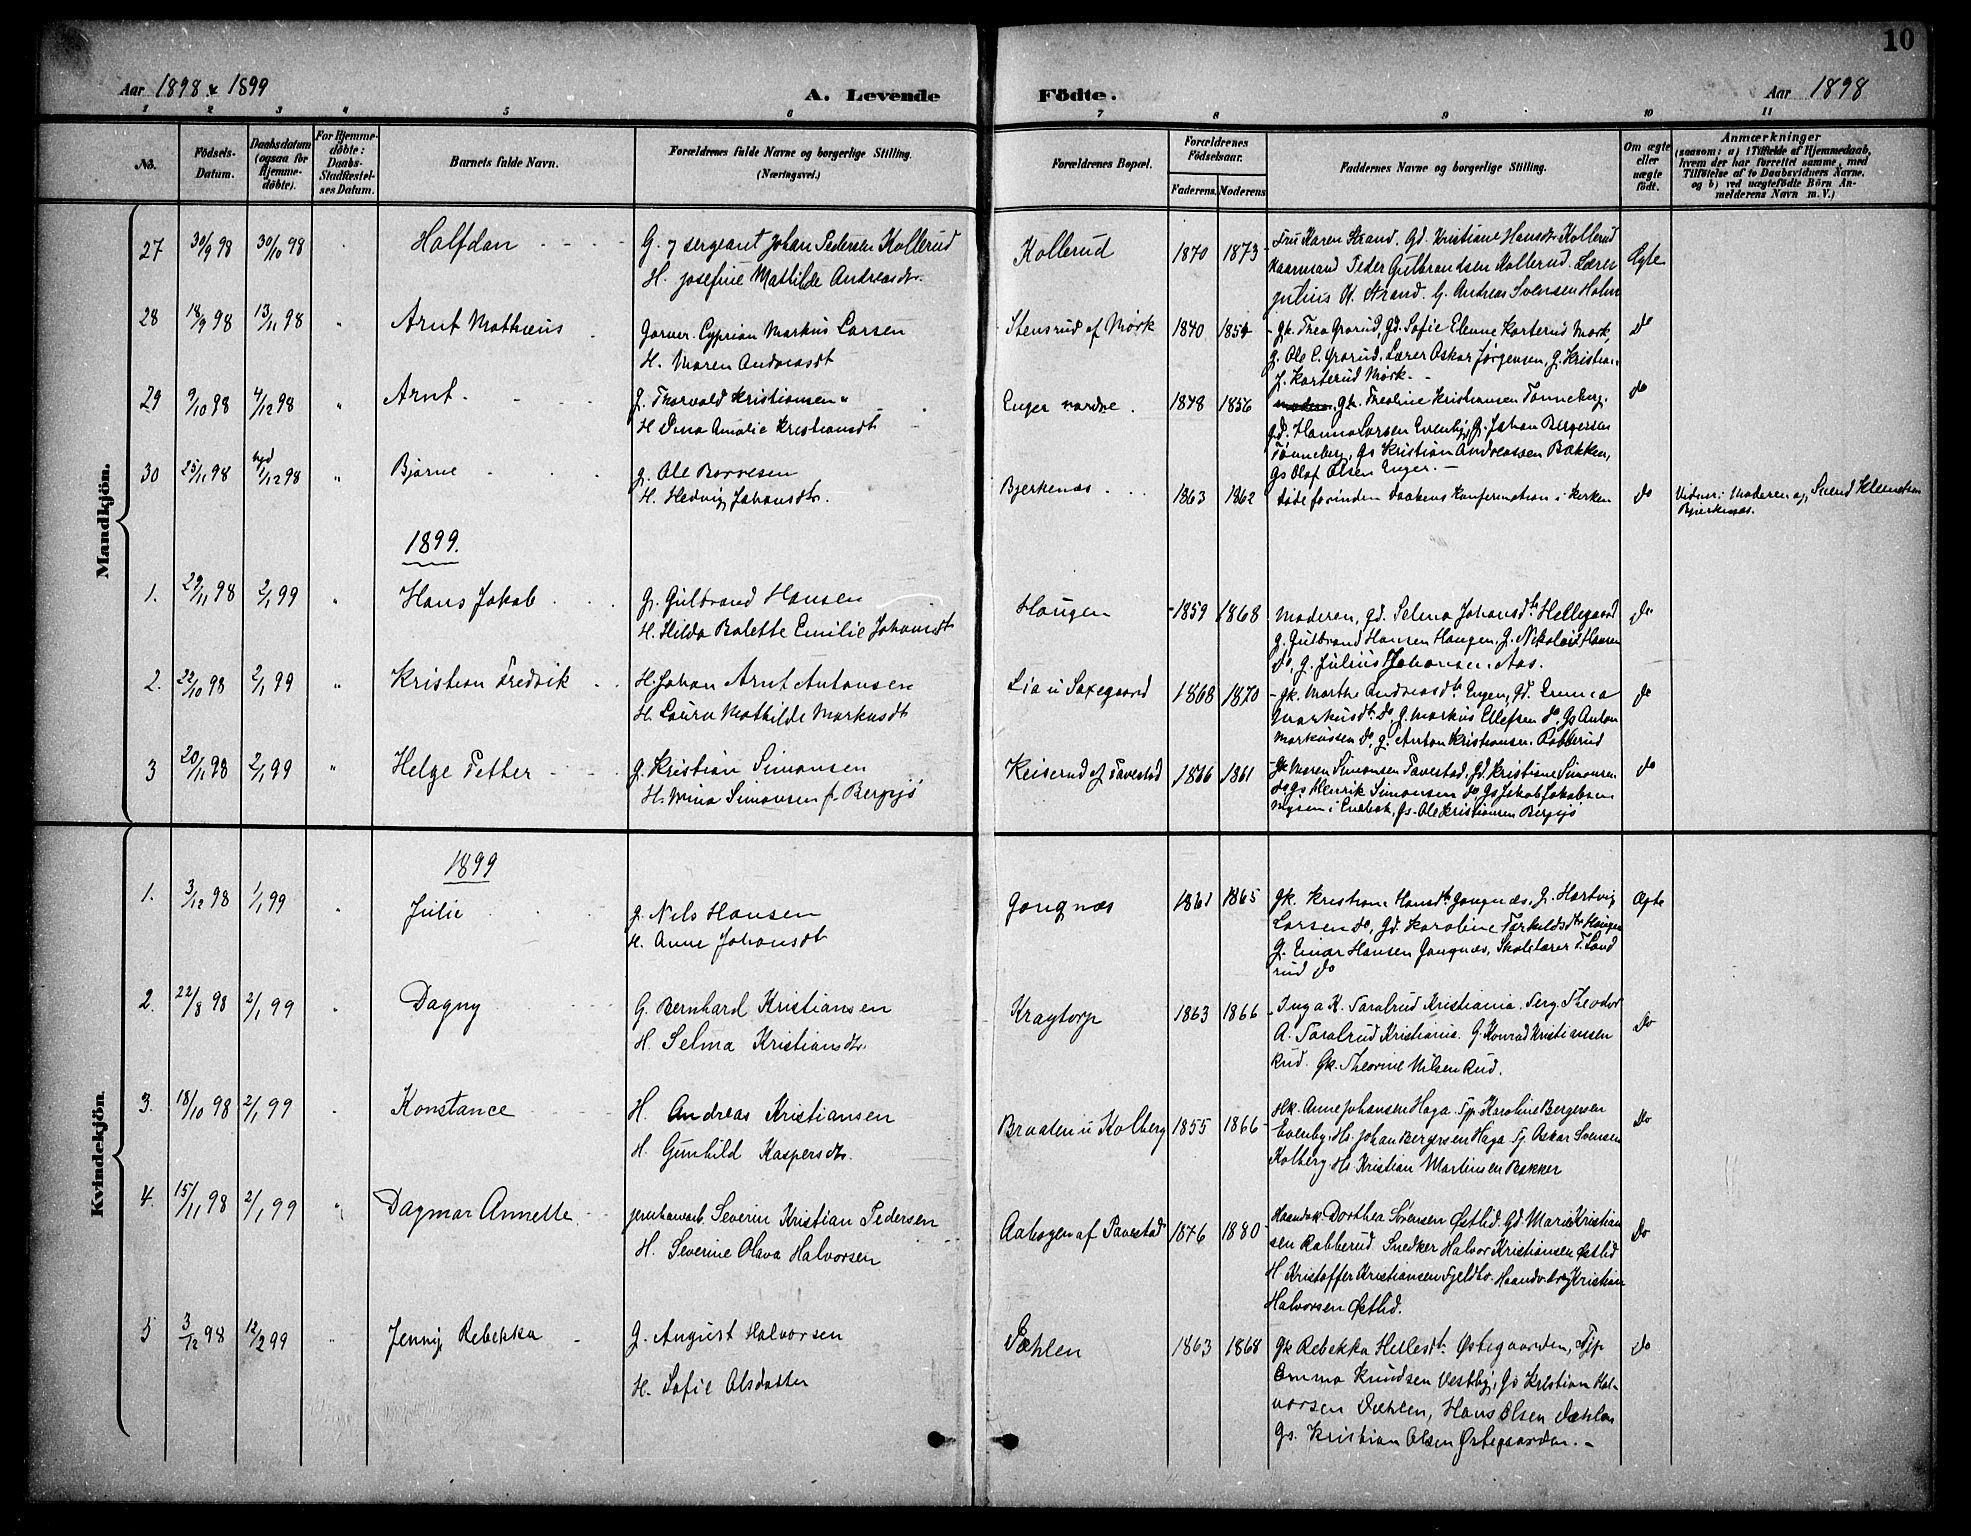 10
Aar 1898 & 1899
A. Levende
Fødte.
Aar 1898
1 2 3 4 5 6 7 8 9 10 11
No.
Fødsels-Datum.
Daabsdatum (ogsaa for Hjemmedøbte).
For Hjemmedøbte: Daabs-Stadfæstelses Datum.
Barnets fulde Navn.
Forældrenes fulde Navne og borgerlige Stilling. (Næringsvei.)
Forældrenes Bopæl.
Forældrenes Fødselsaar.
Faderens. Moderens
Faddernes Navne og borgerlige Stilling.
Om ægte eller uægte født.
Anmærkninger
(saasom: a) i Tilfælde af Hjemmedaab,
hvem der har forrettet samme, med
Tilføielse af to Daabsvidners Navne,
og b) ved uægtefødte Børn Anmelderens Navn m. V.)
Mandkjön.
27 30/9 98 30/10 98 Halfdan G. sergeant Johan Pedersen Kollerud
H. Josefine Mathilde Andreasdtr.
Kollerud 1870 1873 Fru Karen Strand. Gd. Kristiane Hansdtr Kollerud
Kaarmand Peder Gulbrandsen Kollerud. Lærer
Julius K. Strand. G. Andreas Svensen Holm
Ægte
28 18/9 98 13/11 98 " Arnt Mathæus Garver Cyprian Markus Larsen
H. Maren Andreasdt
Stensrud af Mørk 1840 1854 Gk. Thea Grorud, Gd. Sofie Elenne Korterud Mørk,
G. Ole C. Grorud. Lærer Oskar Jørgensen, G. Kristian
J. Korterud Mørk.
do
29 9/10 98 4/12 98 " Arnt G. Thorvald Kristiansen
H. Dina Amalie Kristiansdt
Enger nordre 1848 1856 Gk. Theoline Kristiansen Tønneberg,
Gd. Hanna Larsen Evenby, G. Johan Bergersen
Tønneberg, Gs Kristian Andreassen Bakken,
Gs Olaf Olsen Enger.
do
30 25/11 98 hjd 1/12 98 " Bjarne G. Ole Borresen
H. Hedvig Johansdtr.
Bjerkenæs 1863 1862 døde forinden Daabens Konfirmation i Kirken
do Vidner: Moderen og Svend Klemetsen
Bjerkenæs.
1899.
1. 29/11 98 2/1 99 " Hans Jakob G. Gulbrand Hansen
H. Hilda Balette Emilie Johansdt
Haugen 1859 1868 Moderen, Gd. Selma Johansdtr Hellegaard
G. Gulbrand Hansen Haugen, G. Nikolai Hansen
do, G. Julius Johansen Aas.
do
2. 22/10 98 2/1 99 " Kristian Fredrik H. Johan Arnt Antonsen
H. Laura Mathilde Markusdt
Lia u Saxegaard 1868 1870 Gk. Marthe Andreasdtr Engen, Gd. Emma
Markusdt do, G. Markus Ellefsen do, Gs Anton
Markussen do, G. Anton Kristiansen Rabberud
do
3 20/11 98 2/1 99 " Helge Petter G. Kristian Simonsen
H. Mina Simonsen f. Bergsjø
Keiserud af Tavestad 1866 1861 Gk Maren Simonsen Tavestad, Gd. Kristiane Simonsen
do, Gs Henrik Simonsen do Gs Jakob Jakobsen
Mysen i Enebak, Gs. Ole Kristiansen Bergsjø
do
Kvindekjön.
1899
1. 3/12 98 1/1 99 " Julie G. Nils Hansen
H. Anne Johansdt
Gangnæs 1861 1865 Gk. Kristiane Hansdtr Gangnæs, G. Hartvig
Larsen do, Gd. Karoline Tarkildsdtr Haugen
G. Einar Hansen Gangnæs, Skolelærer T. Sand
rud do
Ægte
2. 22/8 98 2/1 99 " Dagny G. Bernhard Kristiansen
H. Selma Kristiansdtr.
Kragtorp 1863 1866 Inga K. Taralrud Kristiania. Serg. Theodor
A. Taralrud Kristiania. G. Konrad Kristiansen
Rud. Gk. Theorine Nilsen Rud.
Do
3. 18/10 98 2/1 99 " Konstance H. Andreas Kristiansen
H. Gunhild Kaspersdtr.
Braaten u Kolberg 1855 1866 Hk. Anne Johansen Haga. Tp. Karoline Bergersen
Evenby. Hs. Johan Bergersen Haga. Tj. Oskar Svensen
Kolberg. Hs Kristian Martinsen Bakker
Do
4 15/11 98 2/1 99 " Dagmar Annette jernbanearb. Severin Kristian Pedersen
H. Severine Olava Halvorsen
Aabogen af Tavestad 1876 1880 Haandvk. Dorthea Sørensen Østlid. Gd. Marie Kristian
sen Rabberud Snedker Halvor Kristiansen Østlid
H Kristoffer Kristiansen Fjeldbo. Haandv. Kristian
Halvorsen Østlid.
Do
5 3/12 98 12/2 99 " Jenny Rebekka G. August Halvorsen
H. Sofie Olsdatter
Dæhlen 1863 1868 Gk Rebekka Hellesdtr Østegaarden, Tjp
Emma Knudsen Vestby, Gs Kristian Hal-
vorsen Dæhlen, Hans Olsen Dæhlen
Gs. Kristian Olsen Østegaarden.
do